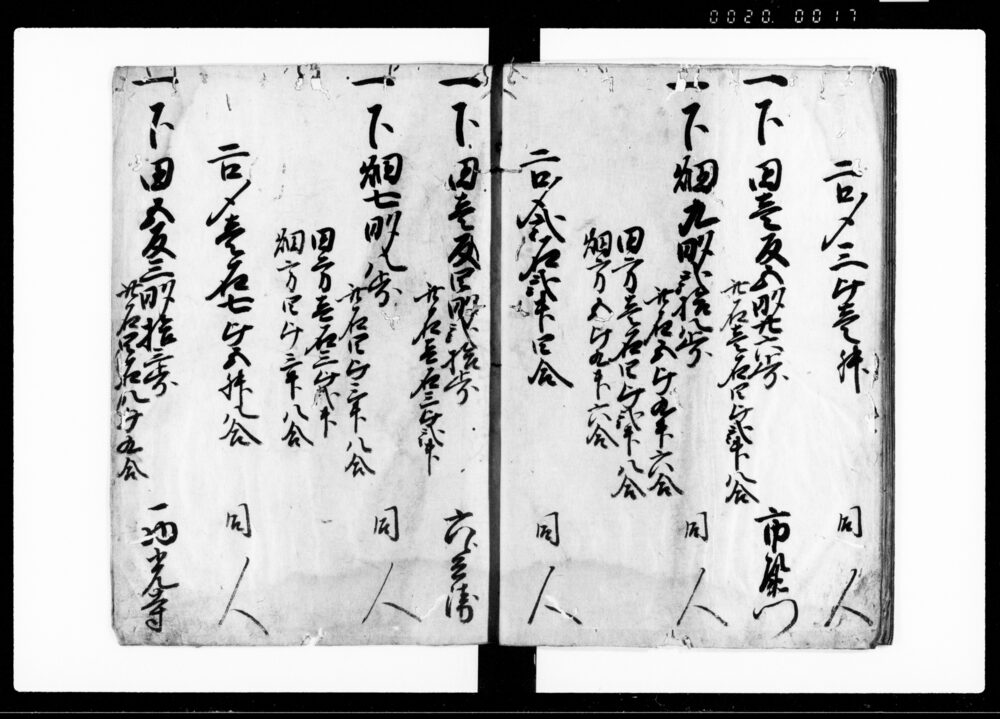 0020.0017
三斗壱升 同人
一下田壱反五畝廿六歩 市左衛門
此石壱石四斗弐升八合
一下畑九畝弐拾八歩 同人
此石五斗九升六合
田方壱石四斗弐升八合
畑方五斗九升六合
弐石弐升四合 同人
一下田壱反四畝弐拾歩 六兵衛
此石壱石三斗弐升
一下畑七畝九歩 同人
此石四斗三升八合
田方壱石三斗弐升
畑方四斗三升八合
壱石七斗五升八合 同人
一下田五反三畝拾三歩 西光寺
此石四石八斗九合